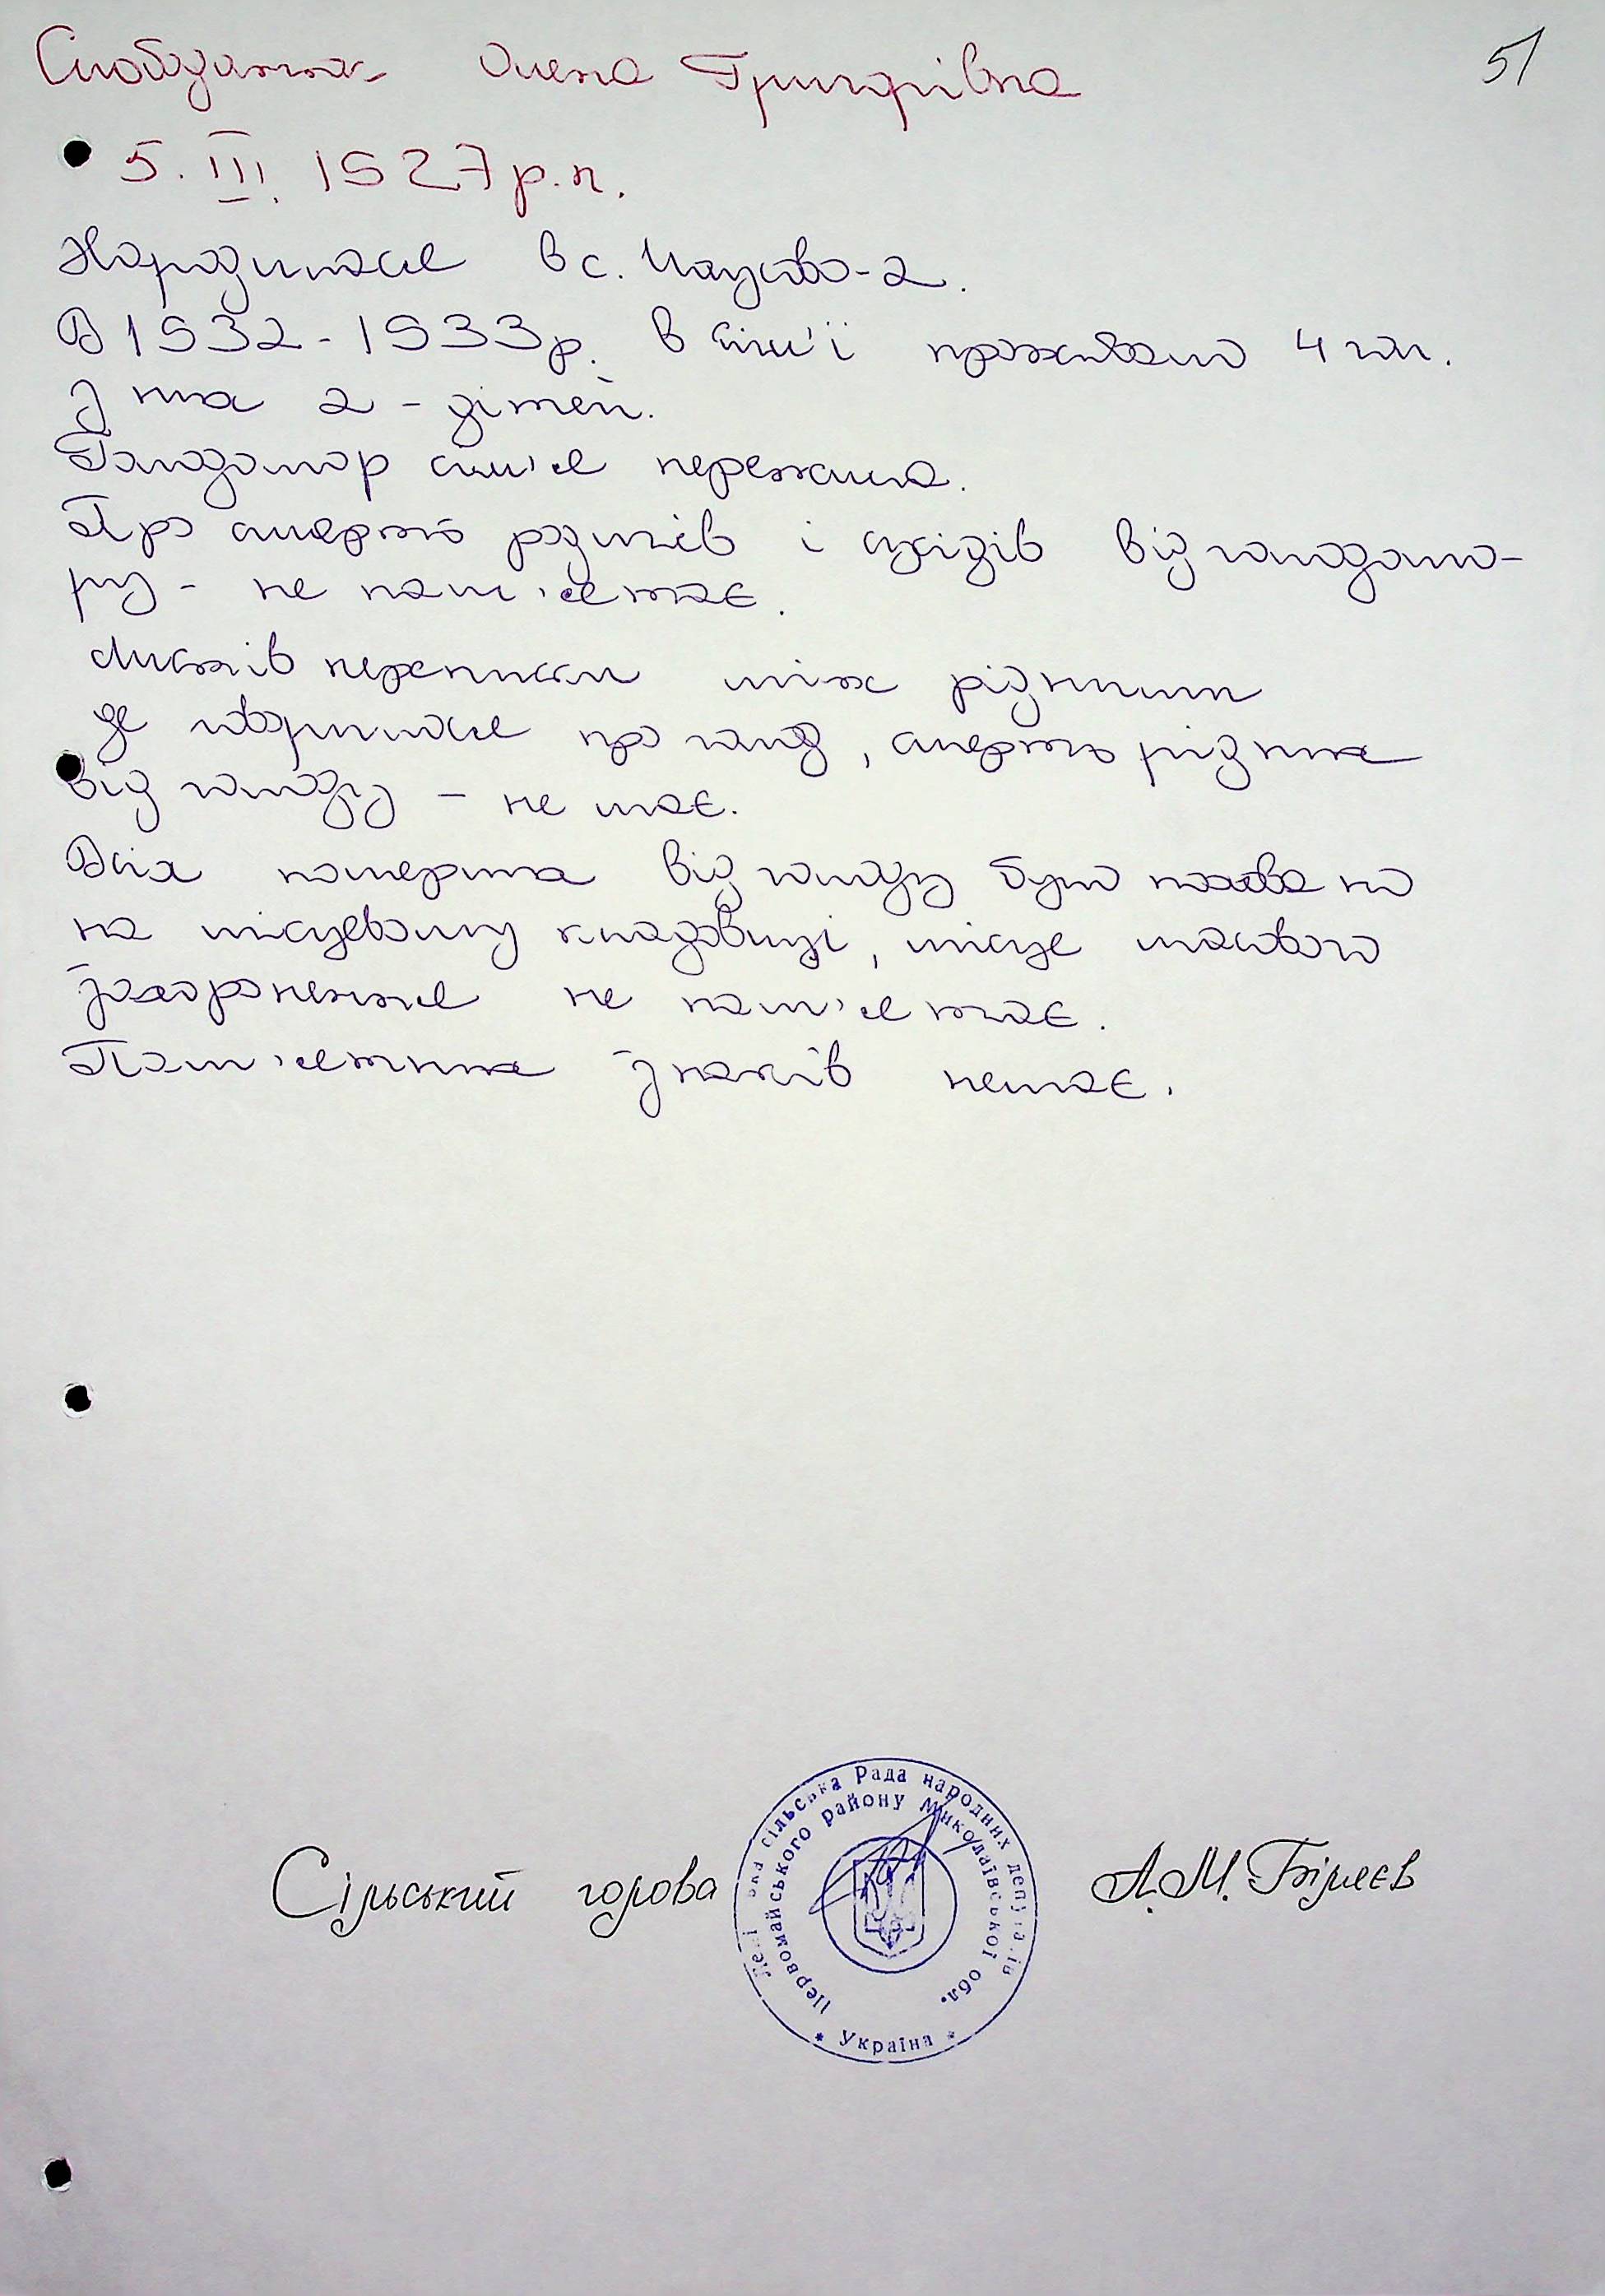 Слободяник Олена Григорівна
51
5. III. 1927 р.н.
Народилася в с. Чаусово-2.
В 1932-1933р. в сім'ї проживало 4 чол.
з них 2 - дітей.
Голодомор сім'я пережила.
Про смерть родичів і сусідів від голодомо-
ру - не пам'ятає.
Листів переписки між рідними
де говорилося про голод, смерть рідних
від голоду - не має.
Всіх померлих від голоду було поховано
на місцевому кладовищі, місце масового
захоронення не пам'ятає.
Пам'ятних знаків немає.
Сільський голова
А.М. Біляєв
сільська Рада народних депутатів
Первомайського району Миколаївської обл.
* Україна *